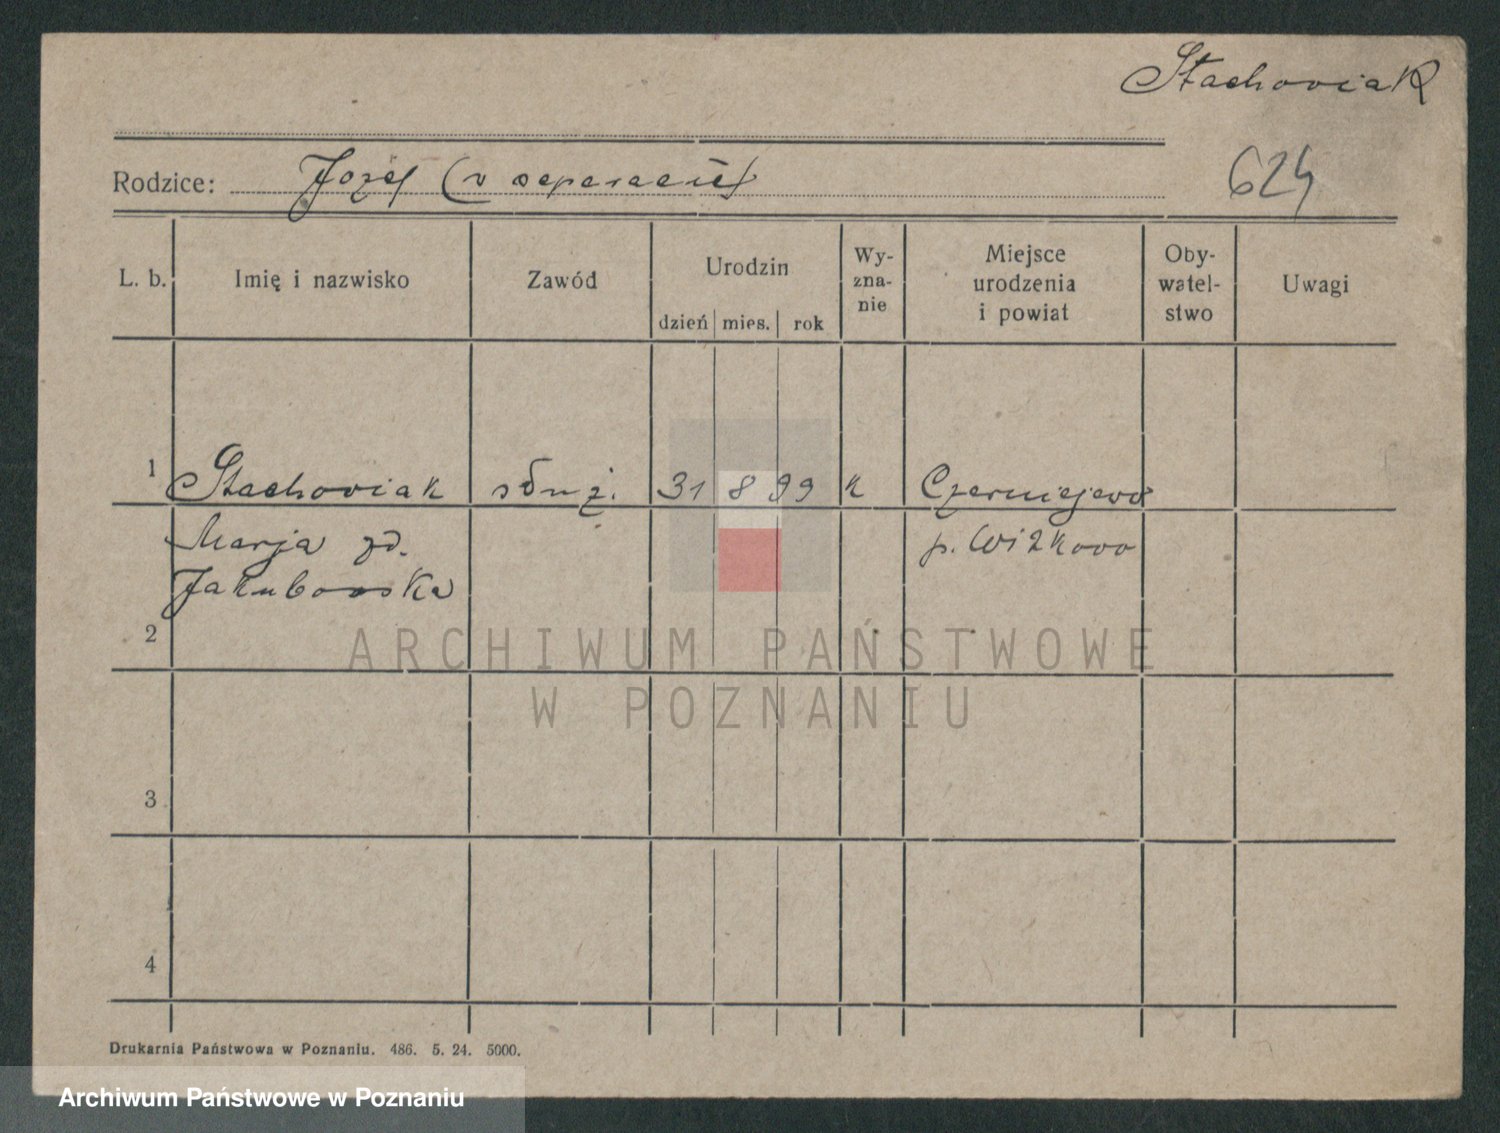 Stachowiak
Rodzice: Józef (w separacie)
624
L. b. Imię i nazwisko Zawód Urodzin Wy-zna-nie Miejsce urodzenia i powiat Oby-watel-stwo Uwagi
dzień mies. rok
1 Stachowiak służ. 31 8 99 k Czerniejewo
Marja zd. p. Witkowo
Jakubowska
2
ARCHIWUM PAŃSTWOWE
W POZNANIU
3
4
Drukarnia Państwowa w Poznaniu. 486. 5. 24. 5000.
Archiwum Państwowe w Poznaniu